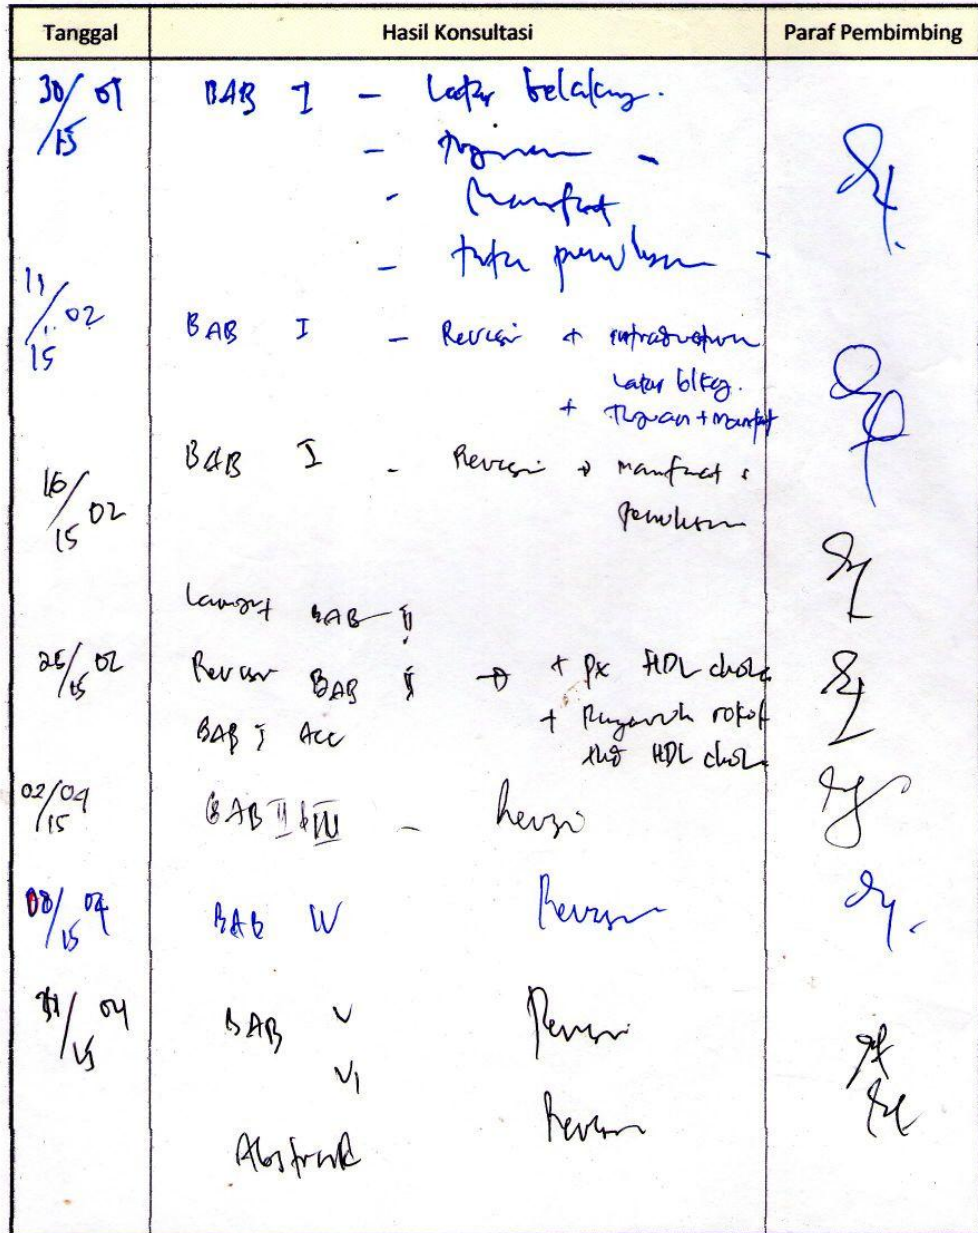 Tanggal Hasil Konsultasi Paraf Pembimbing
30/01/15 BAB I - Latar belakang.
- Tujuan -
- Manfaat
- tata penulisan -
11/02/15 BAB I - Revisi +
Latar blkg.
+ Tujuan + manfaat
16/02/15 BAB I - Revisi → manfaat
penulisan
Lanjut BAB II
25/02/15 Revisi BAB II → + Px HDL chol
BAB I Acc + Pengaruh rokok
HDL chol
02/04/15 BAB II & III - Revisi
08/04/15 BAB IV Revisi
/04/15 BAB V Revisi
VI
Abstrak Revisi